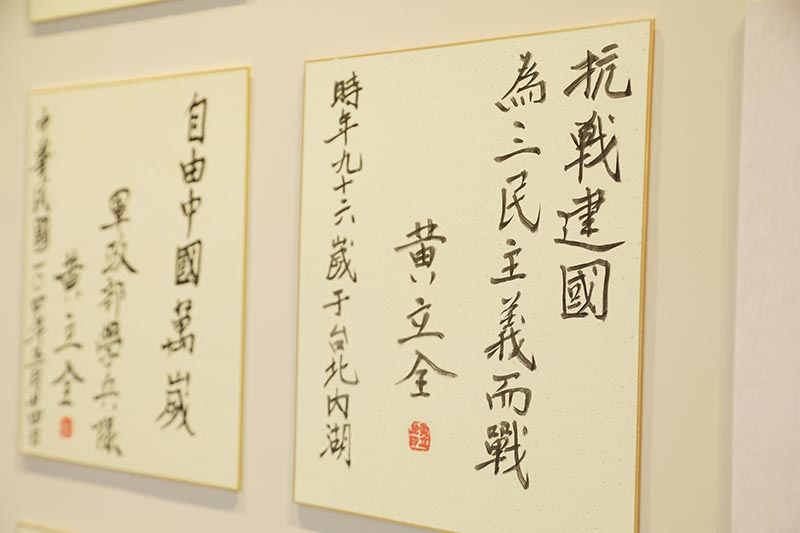 抗戰建國
為三民主義而戰
黃立全
時年九十六歲于台北內湖
自由中國萬歲
軍政部學兵隊
黃立全
中華民國一〇四年五月廿四日